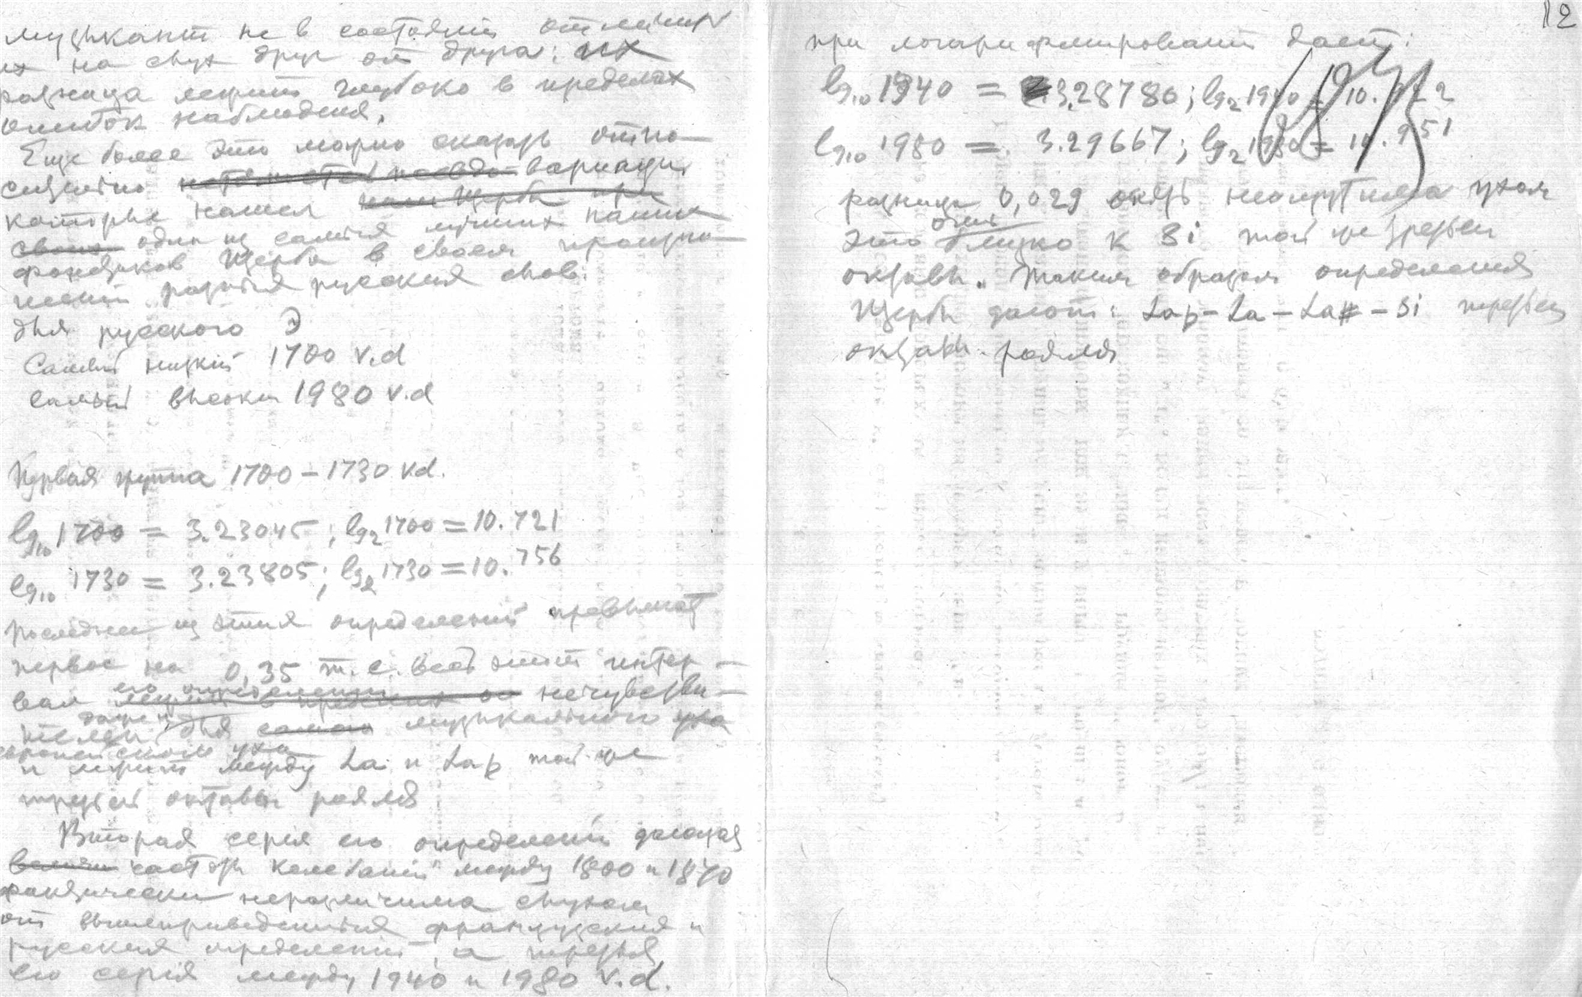 музыкант не в состоянии отличить
их на слух друг от друга: их
разница лежит глубоко в пределах
ошибок наблюдения.
Еще более это можно сказать отно-
сительно вариаций
которые нашел
один из самых лучших наших
фонетиков Щерба в своем произно-
шении разных русских слов.
для русского Э
Самый низкий 1700 v.d
самый высокий 1980 v.d
Первая группа 1700 – 1730 v.d.
lg10 1700 = 3.23045; lg2 1700 = 10.721
lg10 1730 = 3.23805; lg2 1730 = 10.756
последнее из этих определений превышает
первое на 0,35 т.е. весь этот интер-
вал его определений нечувстви-
телен даже для музыкального уха
европейского уха
и лежит между La и La♭ той же
третьей октавы рояля
Вторая серия его определений дающая
частоты колебаний между 1800 и 1840
фактически неразличима слухом
от вышеприведенных французских и
русских определений, а третья
его серия между 1940 и 1980 v.d.
12
при логарифмировании дает:
lg10 1940 = 3.28780; lg2 1940 = 10.922
lg10 1980 = 3.29667; lg2 1980 = 10.951
разница 0,029 опять неощутима ухом
это очень близко к Si той же третьей
октавы. Таким образом определения
Щербы дают: La♭ – La – La# – Si третьей
октавы рояля